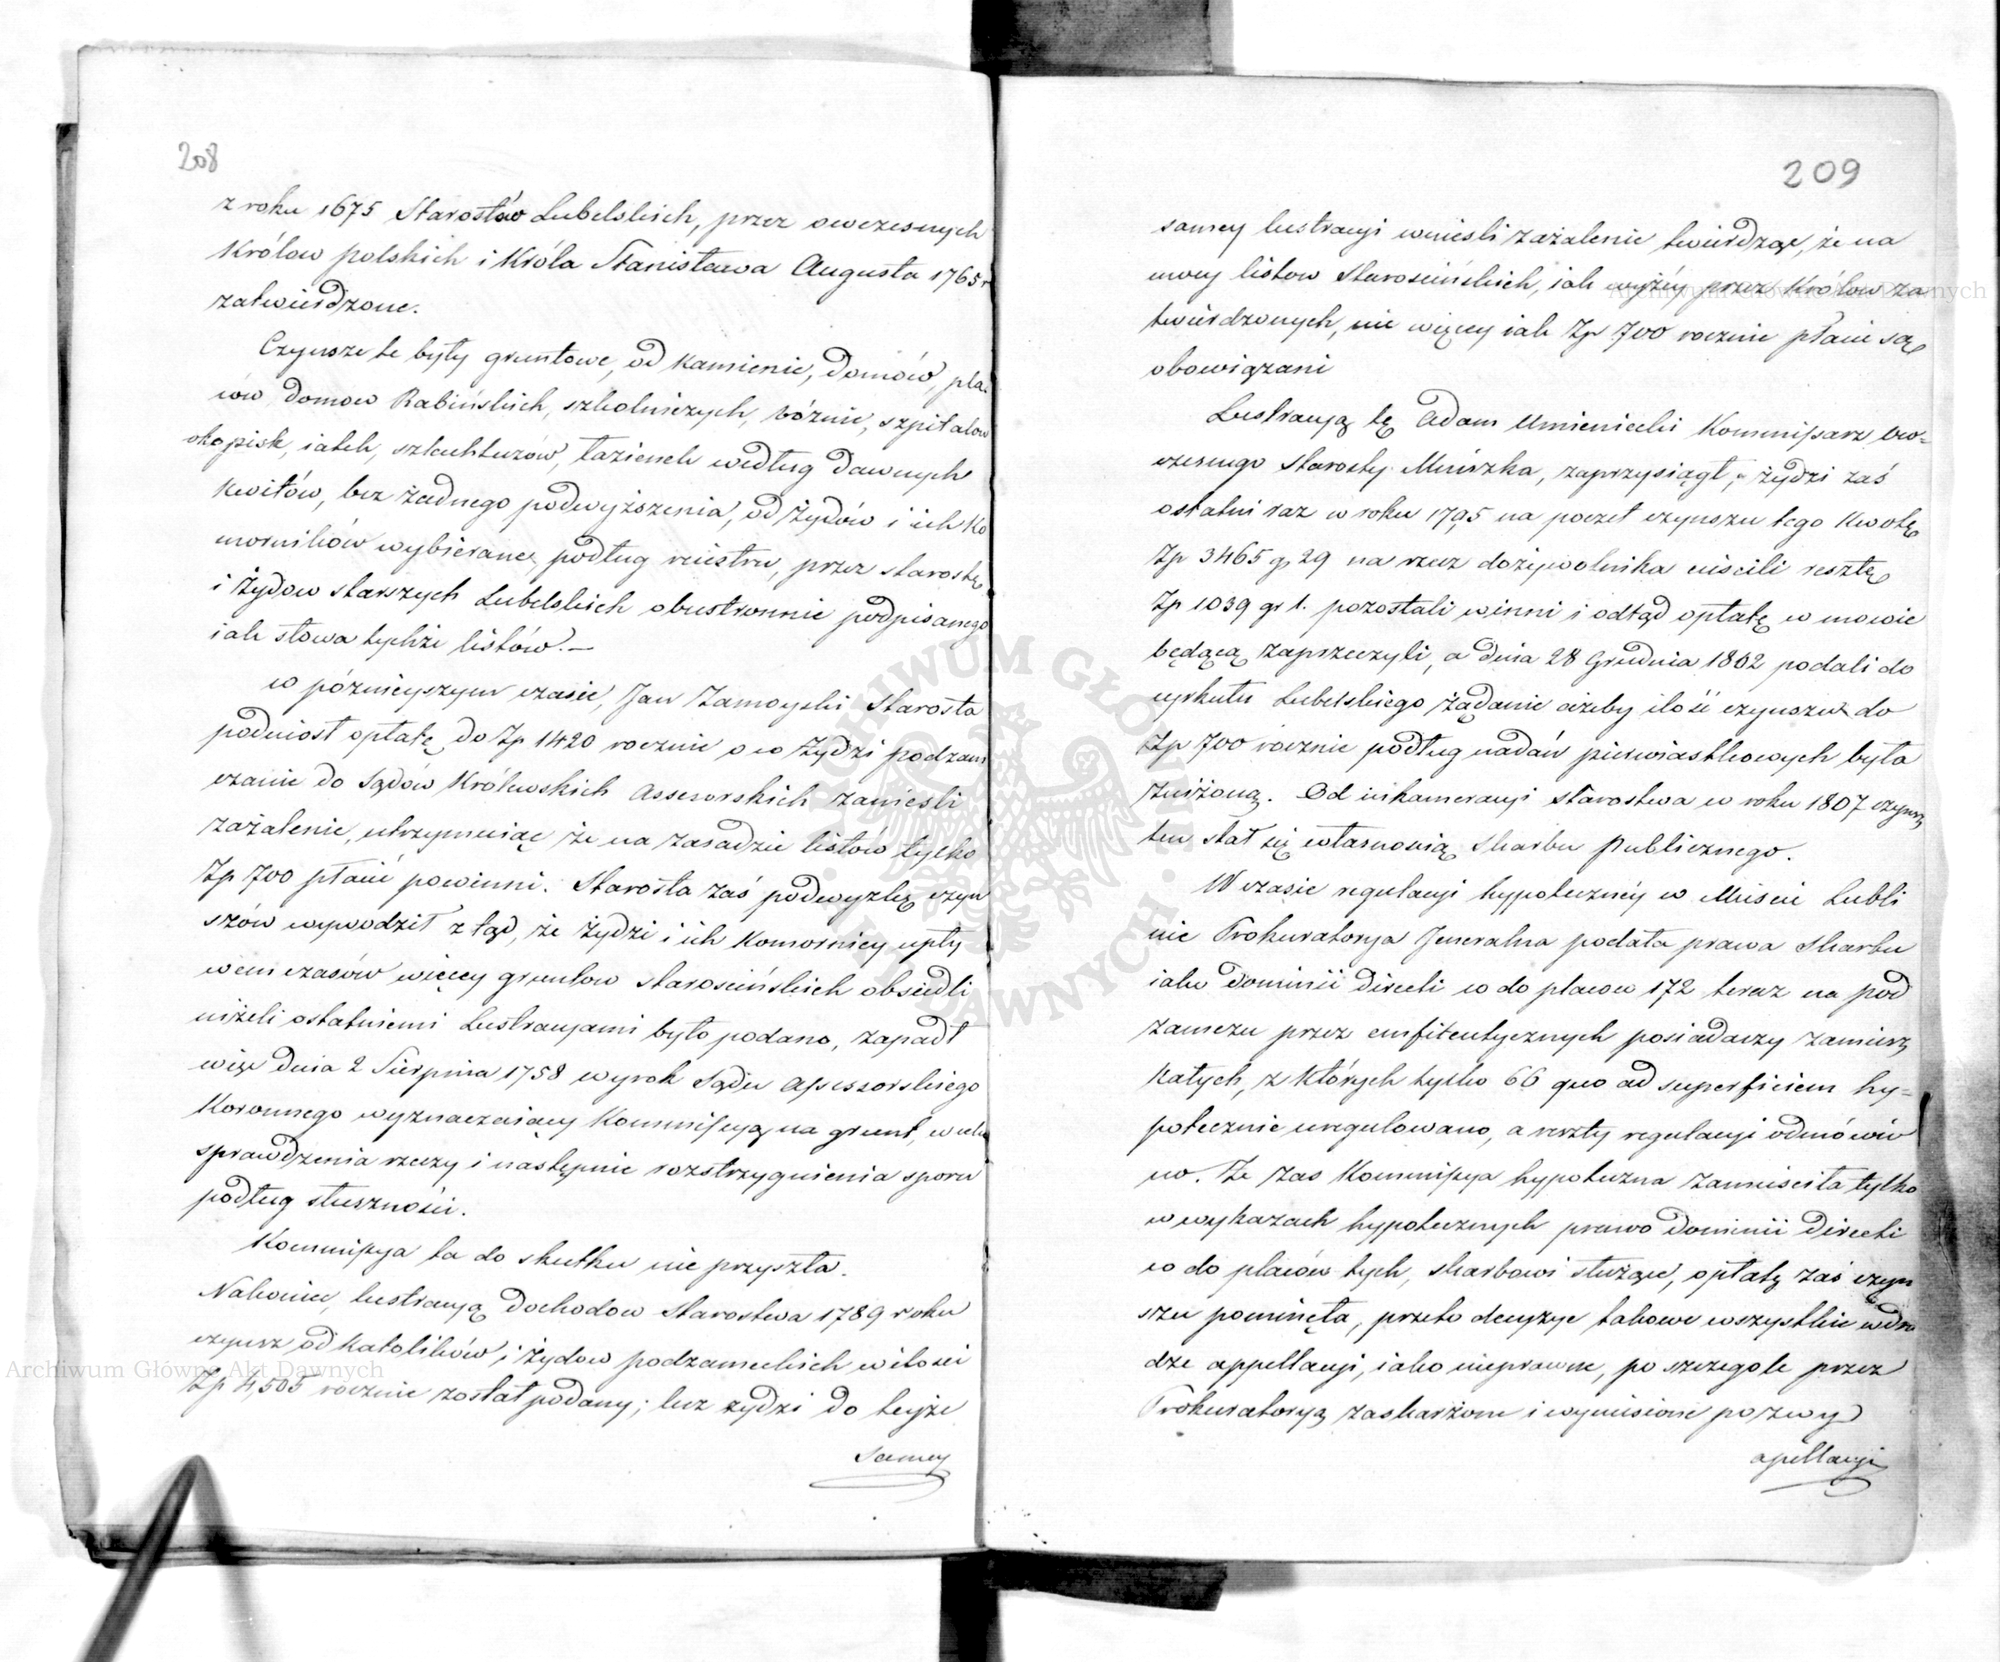 208
z roku 1675 Starostów Lubelskich, przez owczesnych
Królow polskich i Króla Stanisława Augusta 1765 r
zatwierdzone.
Czynsze te były gruntowe, od kamienic, domów, pla
ców domow Rabińskich, szkolniczych, bóżnic, szpitalow
okopisk, iatek, szlachtuzów, łazienek według dawnych
kwitów, bez żadnego podwyższenia, od Żydów i ich Ko
morników wybierane, podług reiestru, przez starostę
i Żydow starszych Lubelskich obustronnie podpisanego
iak słowa tychże listów.—
w późnieyszym czasie, Jan Zamoyski Starosta
podniosł opłatę do Zp 1420 rocznie o co Żydzi podzam
czanie do Sądów Królewskich Assessorskich zanieśli
zażalenie, utrzymuiąc że na zasadzie listów tylko
Zp 700 płacić powinni. Starosta zaś podwyzkę czyn
szów wywodził z tąd, że Żydzi i ich Komornicy upły
wem czasów więcey gruntow starościńskich obsiedli
niżeli ostatniemi Lustracyami było podano, zapadł
więc dnia 2 Sierpnia 1758 wyrok Sądu Assessorskiego
Koronnego wyznaczaiący Kommissyą na grunt, w celu
sprawdzenia rzeczy i następnie rozstrzygnienia sporu
podług słuszności.
Kommissya ta do skutku nie przyszła.
Nakoniec, lustracyą dochodow Starostwa 1789 roku
czynsz od Katolików i Żydow podzameckich w ilości
Zp 4,505 rocznie został podany; lecz żydzi do teyże
samey
209
samey lustracyi wnieśli zażalenie twierdząc, że na
mocy listow Starościńskich, iak wyżéy przez Królow za
twierdzonych, nie więcey iak Zp 700 rocznie płacić są
obowiązani
Lustracyą tę Adam Umieniecki Kommissarz ów-
czesnego Starosty Mniszka, zaprzysiągł, żydzi zaś
ostatni raz w roku 1795 na poczet czynszu tego kwotę
Zp 3465 g 29 na rzecz dożywotnika uiścili resztę
Zp 1039 gr 1. pozostali winni i odtąd opłatę w mowie
będącą zaprzeczyli, a dnia 28 Grudnia 1802 podali do
cyrkułu Lubelskiego żądanie ażeby ilość czynszu do
Zp 700 rocznie podług nadań pierwiastkowych była
zniżoną. Od inkameracyi starostwa w roku 1807 czynsz
ten stał się własnością Skarbu Publicznego.
W czasie regulacyi hypoteczney w Mieście Lubli
nie Prokuratorya Jeneralna podała prawa Skarbu
iako Dominii Directi co do placow 172 teraz na pod
zamczu przez emfiteutycznych posiadaczy zamiesz
kałych, z których tylko 66 quo ad superficiem hy-
potecznie uregulowano, a reszty regulacyi odmówio
no. Że zas Kommissya hypoteczna zamieściła tylko
w wykazach hypotecznych prawo Dominii Directi
co do placów tych, skarbowi służące, opłatę zaś czyn
szu pominęła, przeto decyzye takowe wszystkie w dro
dze appellacyi, iako nieprawne, po szczegole przez
Prokuratoryą zaskarżone i wyniesione pozwy
apellacyi
Archiwum Główne Akt Dawnych
Archiwum Główne Akt Dawnych